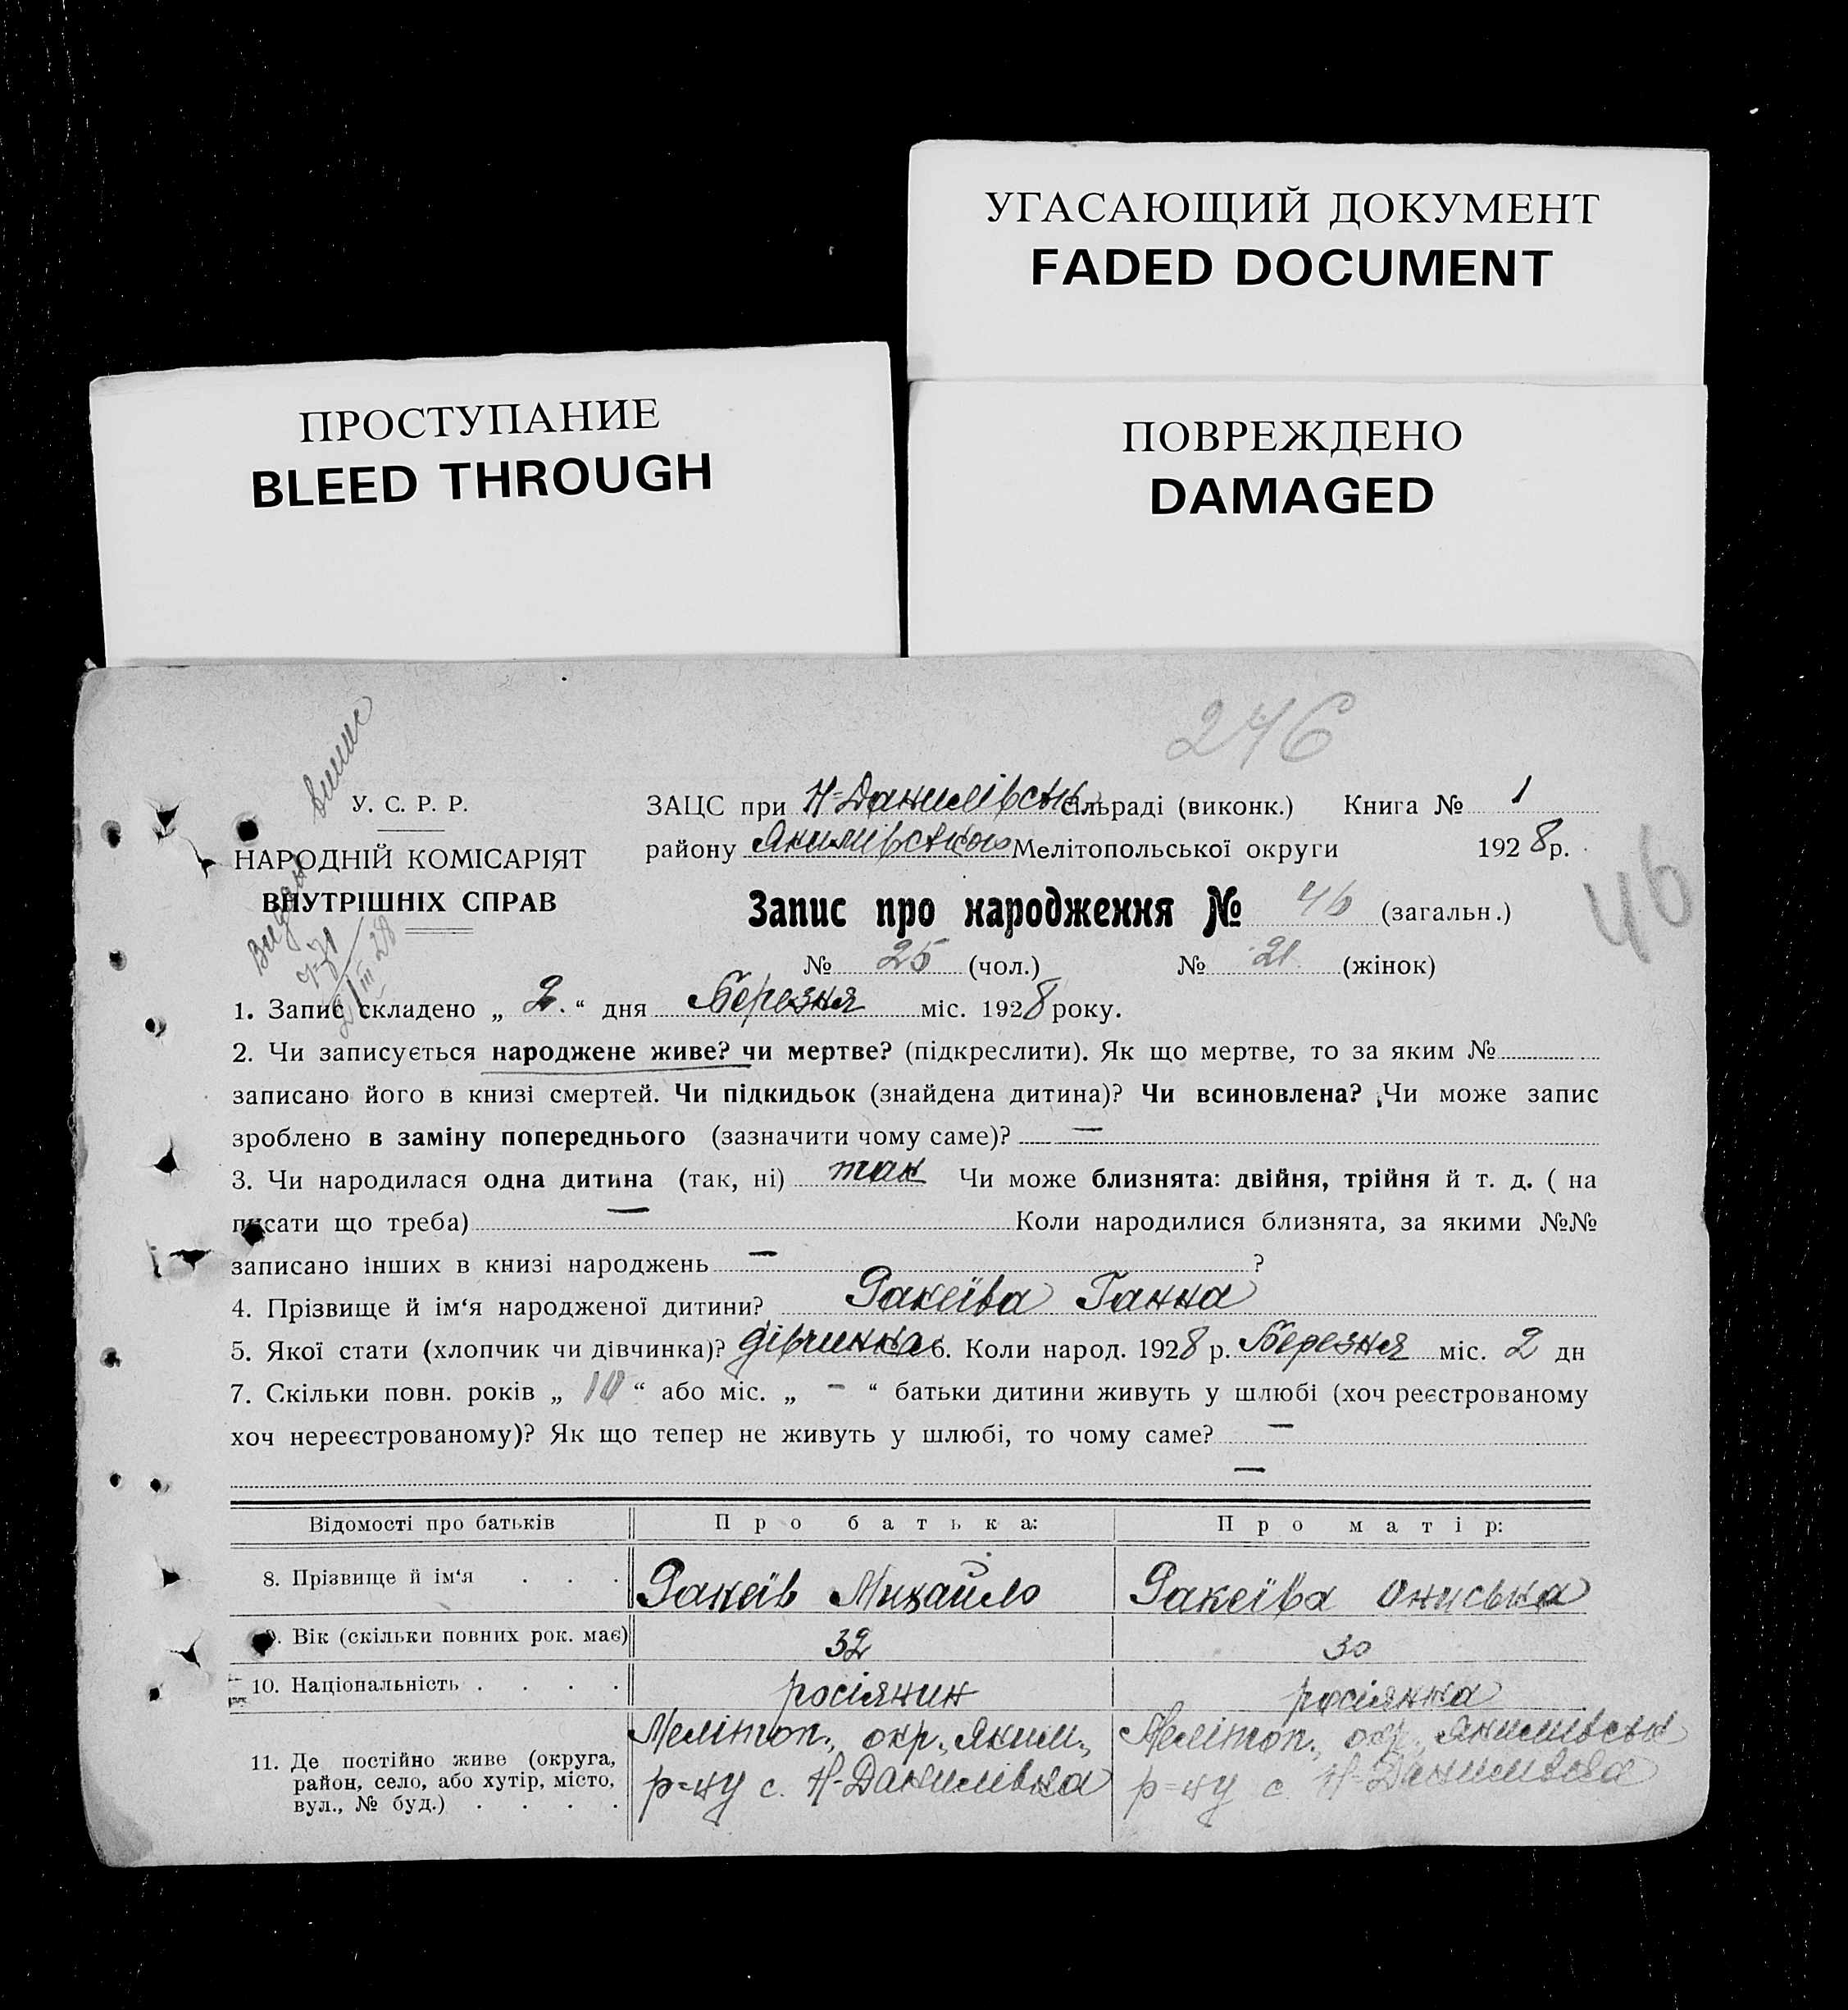 УГАСАЮЩИЙ ДОКУМЕНТ
FADED DOCUMENT
ПРОСТУПАНИЕ
BLEED THROUGH
ПОВРЕЖДЕНО
DAMAGED
246
У. С. Р. Р.
НАРОДНІЙ КОМІСАРІЯТ
ВНУТРІШНІХ СПРАВ
ЗАЦС при Н-Данилівськ сільраді (виконк.) Книга № 1
району Якимівського Мелітопольської округи 1928 р.
46
Запис про народження № 46 (загальн.)
№ 25 (чол.) № 21 (жінок)
1. Запис складено „ 2. “ дня Березня міс. 1928 року.
2. Чи записується народжене живе? чи мертве? (підкреслити). Як що мертве, то за яким №
записано його в книзі смертей. Чи підкидьок (знайдена дитина)? Чи всиновлена? Чи може запис
зроблено в заміну попереднього (зазначити чому саме)? —
3. Чи народилася одна дитина (так, ні) так Чи може близнята: двійня, трійня й т. д. ( на
писати що треба) — Коли народилися близнята, за якими №№
записано інших в книзі народжень — ?
4. Прізвище й ім‘я народженої дитини? Ракеїва Ганна
5. Якої стати (хлопчик чи дівчинка)? дівчинка 6. Коли народ. 1928 р. Березня міс. 2 дн
7. Скільки повн. років „ 10 “ або міс. „ - “ батьки дитини живуть у шлюбі (хоч реєстрованому
хоч нереєстрованому)? Як що тепер не живуть у шлюбі, то чому саме? —
—
Відомості про батьків Про батька: Про матір:
8. Прізвище й ім‘я . . . Ракеїв Михайло Ракеїва Ониська
9. Вік (скільки повних рок. має) 32 30
10. Національність . . . . росіянин росіянка
11. Де постійно живе (округа, район, село, або хутір, місто, вул., № буд.) . . . .
Меліт­оп., окр., Яким., Мелітоп., окр., Якимівськ
р=ну с. Н-Данилівка р=ну с. Н-Данилівка